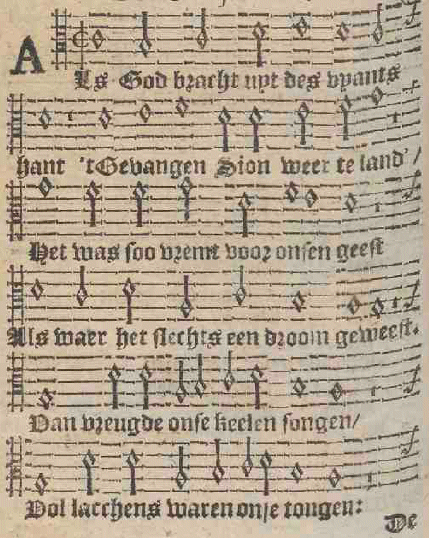 Als God bracht uyt des vyants
hant 'tGevangen Sion weer te land'/
Het was soo vremt voor onsen geest
Als waer het slechts een droom geweest.
Van vreugde onse keelen songen/
Vol lacchens waren onse tongen:
De